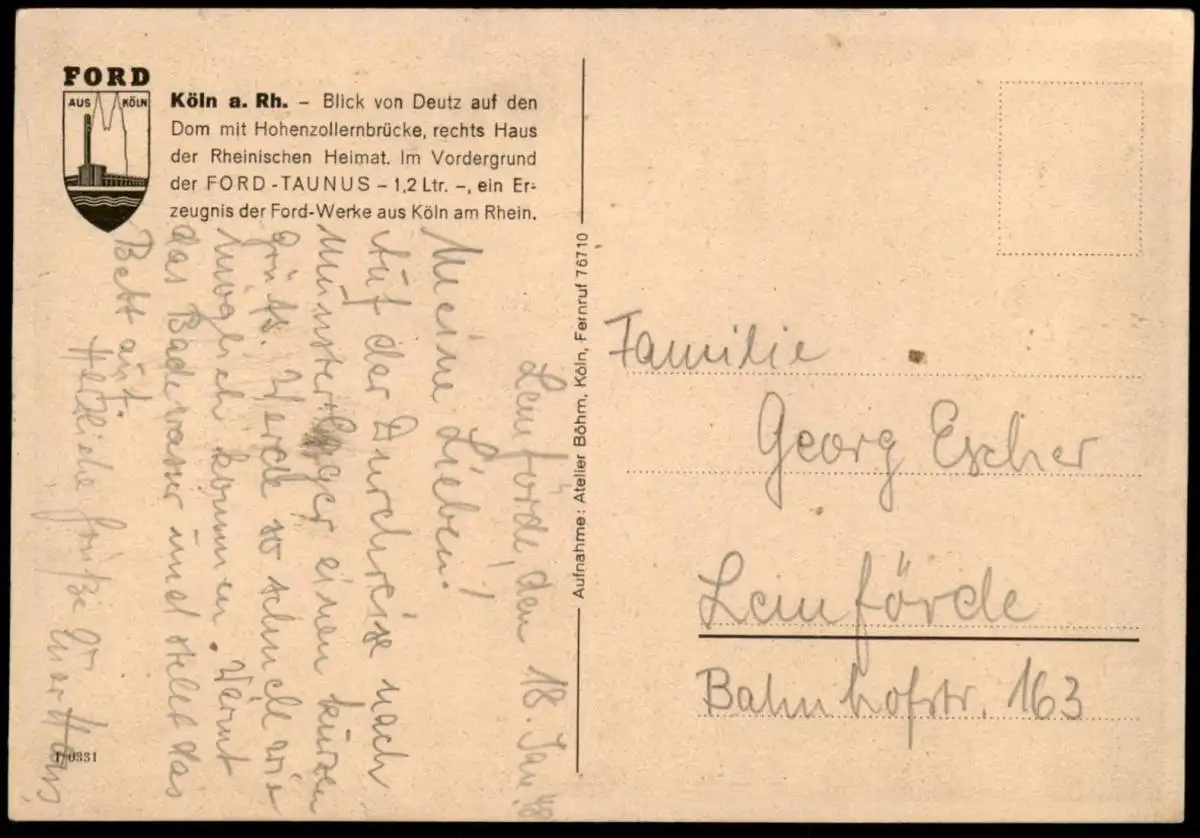 FORD
AUS KÖLN
Köln a. Rh. – Blick von Deutz auf den
Dom mit Hohenzollernbrücke, rechts Haus
der Rheinischen Heimat. Im Vordergrund
der FORD-TAUNUS – 1,2 Ltr. –, ein Er-
zeugnis der Ford-Werke aus Köln am Rhein.
Lemförde, den 18. Jan. 48
Meine Lieben!
Auf der Durchreise nach
Munsterlager einen kurzen
Gruß. Werde so schnell wie
möglich kommen. Wärmt
das Badewasser und stellt das
Bett auf.
Herzliche Grüße Euer Hans
1/0331
Aufnahme: Atelier Böhm, Köln, Fernruf 76710
Familie
Georg Escher
Lemförde
Bahnhofstr. 163